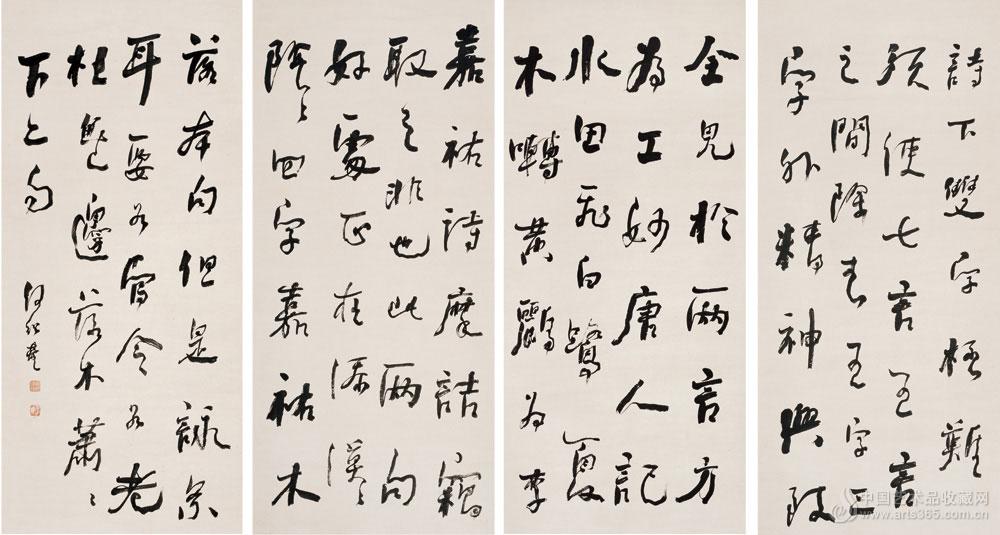 詩下雙字極難
須使七言五言
之間除去五字三
字外精神興致
全見於兩言方
為工妙唐人記
水田飛白鷺夏
木囀黃鸝為李
嘉祐詩摩詰竊
取之非也此兩句
好處正在添漠漠
陰陰四字嘉祐木
落本句但是詠景
耳要如當令如老
杜無邊落木蕭蕭
下之句
何紹基
中国艺术品收藏网
www.arts365.com.cn